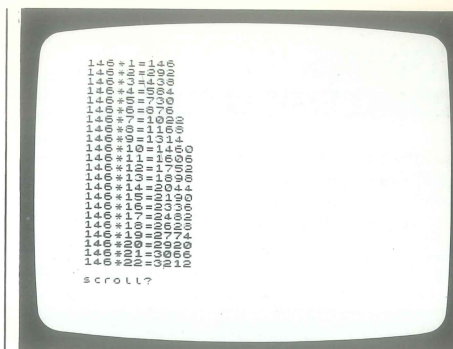 146*1=146
146*2=292
146*3=438
146*4=584
146*5=730
146*6=876
146*7=1022
146*8=1168
146*9=1314
146*10=1460
146*11=1606
146*12=1752
146*13=1898
146*14=2044
146*15=2190
146*16=2336
146*17=2482
146*18=2628
146*19=2774
146*20=2920
146*21=3066
146*22=3212
scroll?